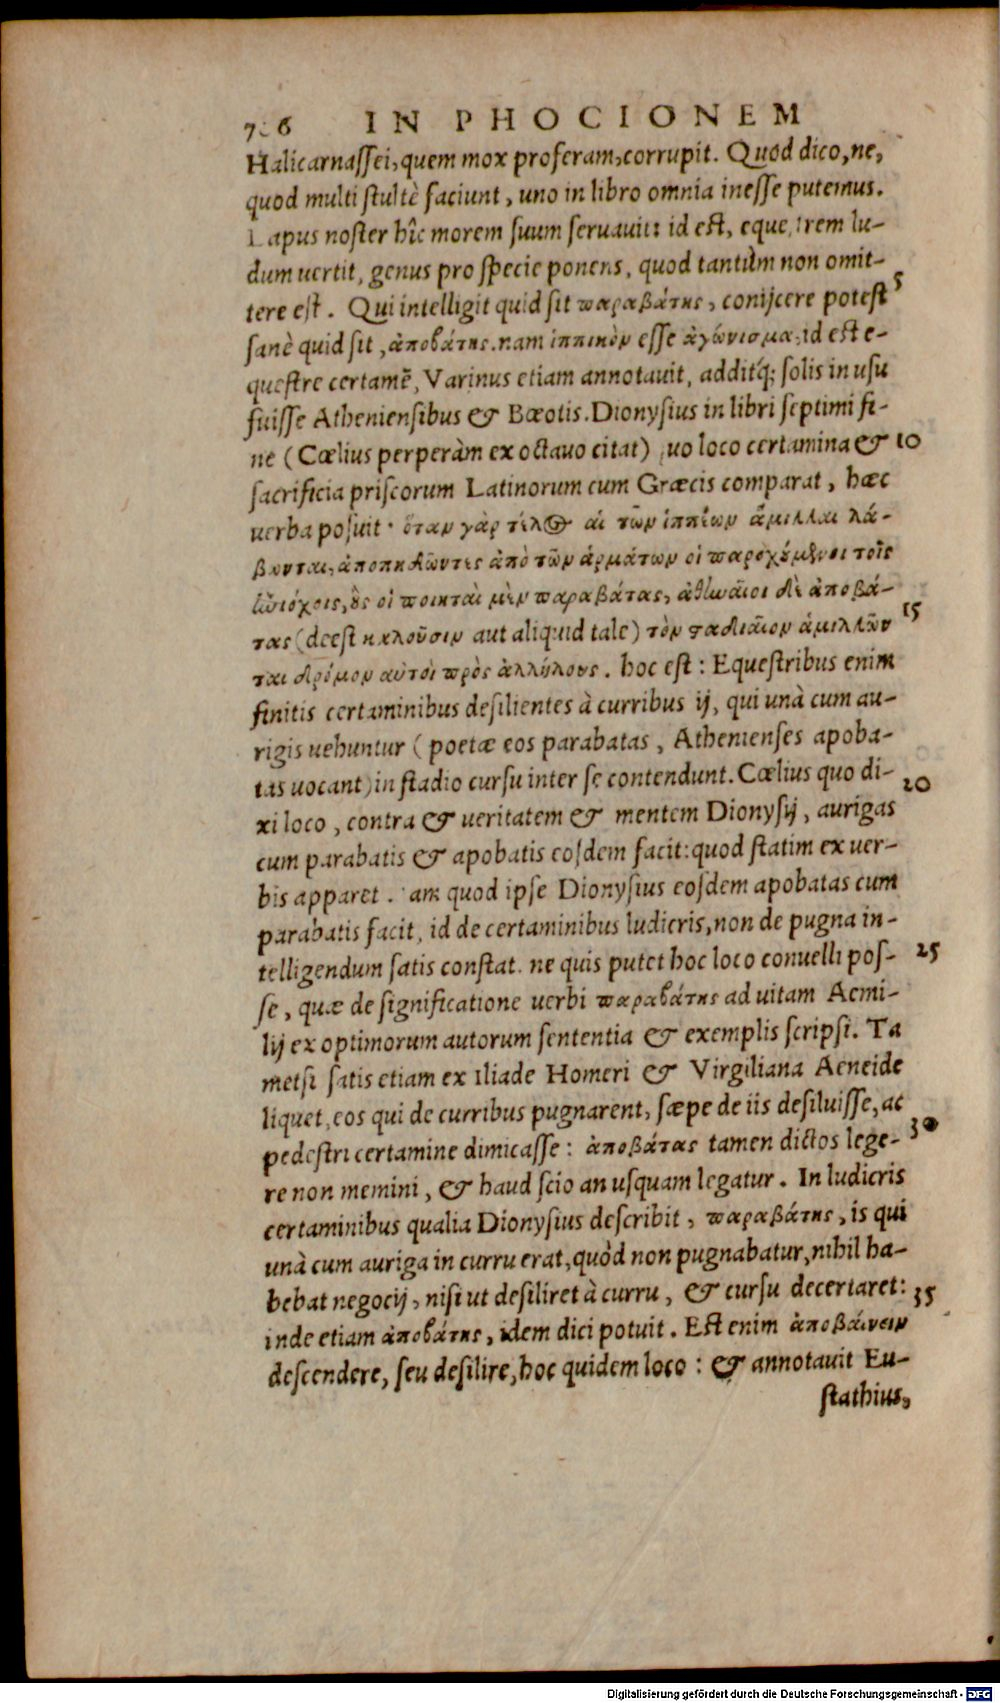 7 6 IN PHOCIONEM
Halicarnaſſei, quem mox proferam, corrupit. Quod dico, ne,
quod multi ſtultè faciunt, uno in libro omnia ineſſe putemus.
Lapus noſter hîc morem ſuum ſeruauit: id eſt, equeſtrem lu-
dum uertit, genus pro ſpecie ponens, quod tantùm non omit-
tere eſt. Qui intelligit quid ſit παραβάτης, conijcere poteſt 5
ſanè quid ſit, ἀποβάτης. nam ἱππικὸν eſſe ἀγώνισμα, id eſt e-
queſtre certamē, Varinus etiam annotauit, additq́; ſolis in uſu
fuiſſe Athenienſibus & Bœotis. Dionyſius in libri ſeptimi fi-
ne (Cœlius perperàm ex octauo citat) uo loco certamina & 10
ſacrificia priſcorum Latinorum cum Græcis comparat, hæc
uerba poſuit. ὅταν γὰρ τέλος αἱ τῶν ἱππέων ἅμιλλαι λά-
βωνται, ἀποπηδῶντες ἀπὸ τῶν ἁρμάτων οἱ παροχούμενοι τοῖς
ἡνιόχοις, οὓς οἱ ποιηταὶ μὲν παραβάτας, ἀθηναῖοι δὲ ἀποβά-
τας (deeſt καλοῦσιν aut aliquid tale) τὸν σταδιαῖον ἁμιλλῶν 15
ται δρόμον αὐτοὶ πρὸς ἀλλήλους. hoc eſt: Equeſtribus enim
finitis certaminibus deſilientes à curribus ij, qui unà cum au-
rigis uehuntur (poetæ eos parabatas, Athenienſes apoba-
tas uocant) in ſtadio curſu inter ſe contendunt. Cœlius quo di-
xi loco, contra & ueritatem & mentem Dionyſij, aurigas 20
cum parabatis & apobatis eoſdem facit: quod ſtatim ex uer-
bis apparet. am quod ipſe Dionyſius eoſdem apobatas cum
parabatis facit, id de certaminibus ludicris, non de pugna in-
telligendum ſatis conſtat. ne quis putet hoc loco conuelli poſ- 25
ſe, quæ de ſignificatione uerbi παραβάτης ad uitam Aemi-
lij ex optimorum autorum ſententia & exemplis ſcripſi. Ta
metſi ſatis etiam ex Iliade Homeri & Virgiliana Aeneide
liquet, eos qui de curribus pugnarent, ſæpe de iis deſiluiſſe, ac
pedeſtri certamine dimicaſſe: ἀποβάτας tamen dictos lege- 30
re non memini, & haud ſcio an uſquam legatur. In ludicris
certaminibus qualia Dionyſius deſcribit, παραβάτης, is qui
unà cum auriga in curru erat, quòd non pugnabatur, nihil ha-
bebat negocij, niſi ut deſiliret à curru, & curſu decertaret: 35
inde etiam ἀποβάτης, idem dici potuit. Eſt enim ἀποβαίνειν
deſcendere, ſeu deſilire, hoc quidem loco: & annotauit Eu-
ſtathius,
Digitalisierung gefördert durch die Deutsche Forschungsgemeinschaft - DFG